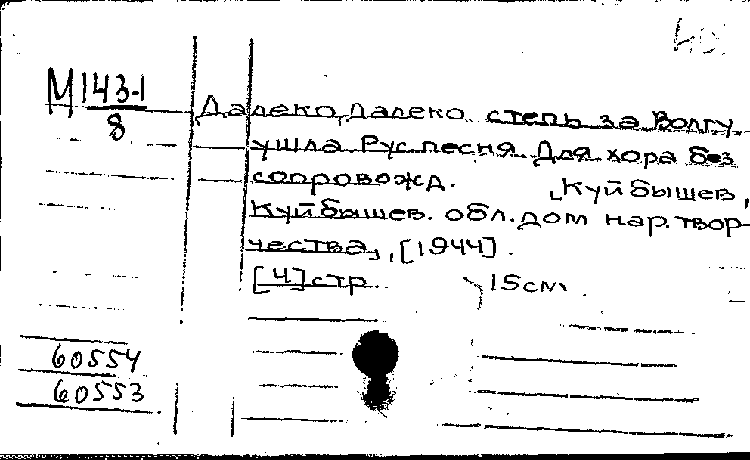 М143-1
8
Далеко, далеко степь за Волгу
ушла. Рус. песня. Для хора без
сопровожд. Куйбышев,
Куйбышев. обл. дом нар. твор-
чества, [1944].
[4] стр. 15см.
60554
60553